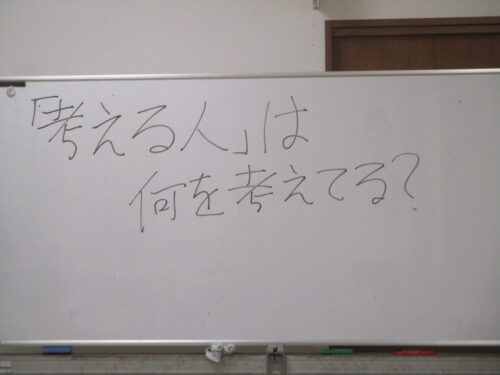 「考える人」は
何を考えてる?